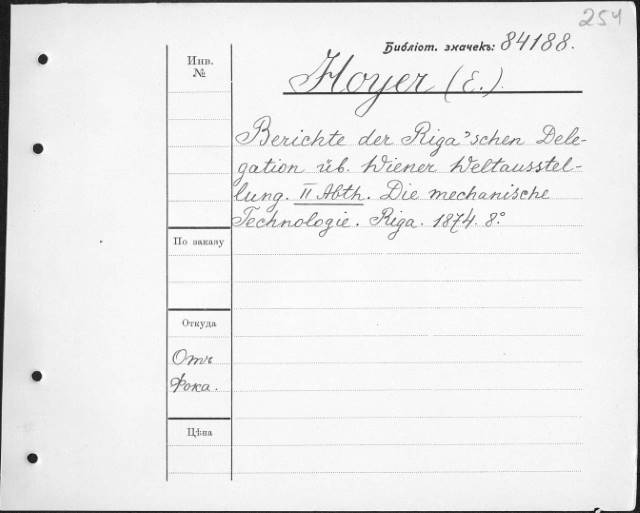 254
Библіот. значекъ: 84188.
Инв.
№
Hoyer (E.).
Berichte der Riga'schen Dele-
gation üb. Wiener Weltausstel-
lung. II Abth. Die mechanische
Technologie. Riga. 1874. 8º
По заказу
Откуда
Отъ
Фока.
Цѣна